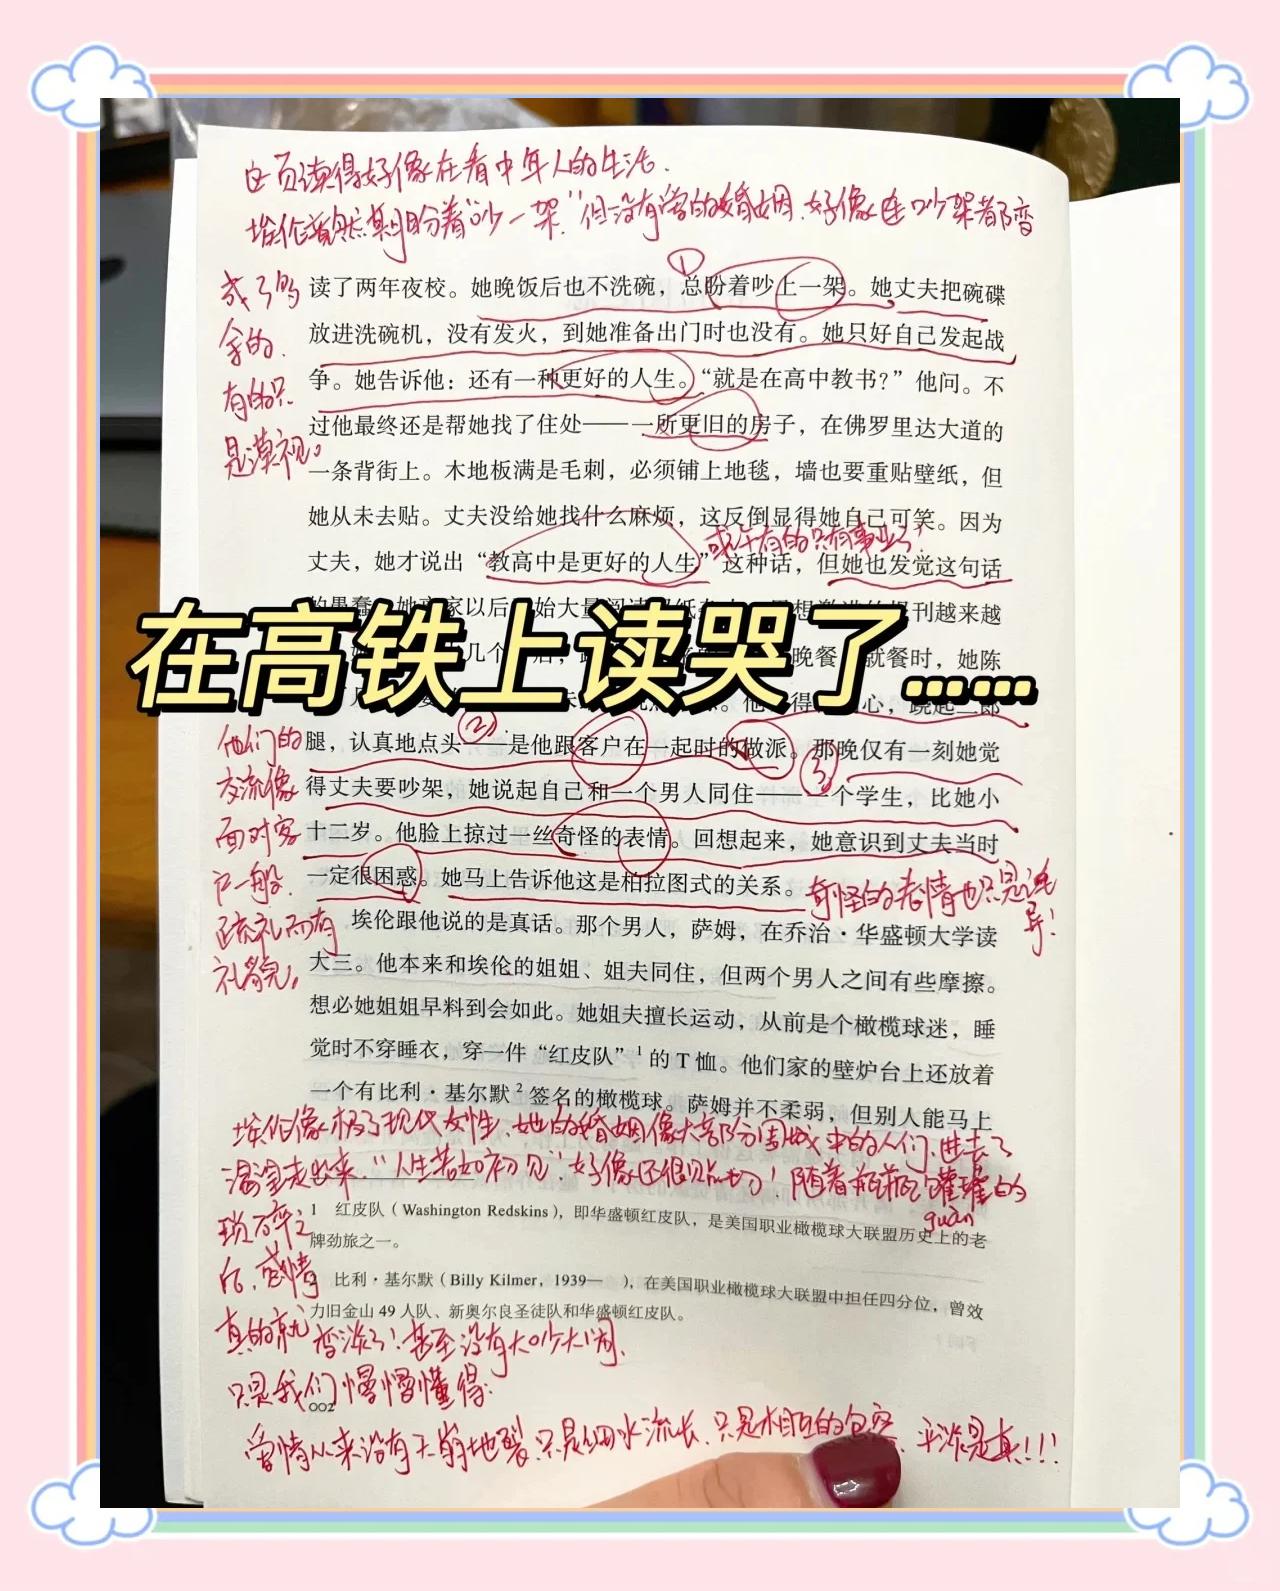 这页读得好像在看中年人的生活.
埃伦竟然期盼着“吵一架”但没有常的婚姻.好像连吵架都变
成了多
余的.
有的只
是漠视。
①
读了两年夜校。她晚饭后也不洗碗，总盼着吵上一架。她丈夫把碗碟
放进洗碗机，没有发火，到她准备出门时也没有。她只好自己发起战
争。她告诉他：还有一种更好的人生。“就是在高中教书？”他问。不
过他最终还是帮她找了住处——一所更旧的房子，在佛罗里达大道的
一条背街上。木地板满是毛刺，必须铺上地毯，墙也要重贴壁纸，但
她从未去贴。丈夫没给她找什么麻烦，这反倒显得她自己可笑。因为
或许有的只有事业了,
丈夫，她才说出“教高中是更好的人生”这种话，但她也发觉这句话
在高铁上读哭了……
晚餐 就餐时，她陈
心，跷起二郎
②
腿，认真地点头——是他跟客户在一起时的做派。那晚仅有一刻她觉
③
得丈夫要吵架，她说起自己和一个男人同住——一个学生，比她小
十二岁。他脸上掠过一丝奇怪的表情。回想起来，她意识到丈夫当时
一定很困惑。她马上告诉他这是柏拉图式的关系。
奇怪的表情也只是
他们的
交流像
面对客
户一般.
疏礼而有
礼貌,
埃伦跟他说的是真话。那个男人，萨姆，在乔治·华盛顿大学读
大三。他本来和埃伦的姐姐、姐夫同住，但两个男人之间有些摩擦。
想必她姐姐早料到会如此。她姐夫擅长运动，从前是个橄榄球迷，睡
觉时不穿睡衣，穿一件“红皮队”1 的 T 恤。他们家的壁炉台上还放着
一个有比利·基尔默2 签名的橄榄球。萨姆并不柔弱，但别人能马上
埃伦像极了现代女性.她的婚姻像大部分围城中的人们.进去了
渴望走出来“人生若如初见”好像还很贴切！随着瓶瓶罐罐的
guàn
琐碎之
后.感情
真的就变淡了！甚至没有大吵大闹.
只是我们慢慢懂得:
爱情从来没有天崩地裂.只是细水流长.只是相互的包容.平淡是真!!!
1 红皮队（Washington Redskins），即华盛顿红皮队，是美国职业橄榄球大联盟历史上的老
牌劲旅之一。
2 比利·基尔默（Billy Kilmer，1939— ），在美国职业橄榄球大联盟中担任四分位，曾效
力旧金山 49 人队、新奥尔良圣徒队和华盛顿红皮队。
002